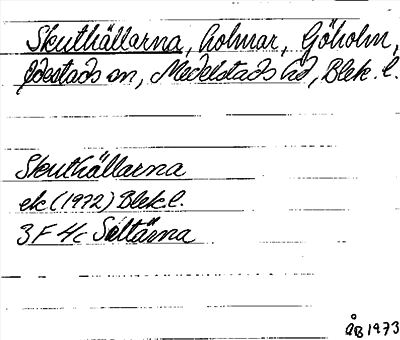 Skuthällarna, holmar, Göholm,
Edestads sn, Medelstads hd, Blek. l.
Skuthällarna
ek (1972) Blek l.
3 F 4c Saltärna
ÅB 1973